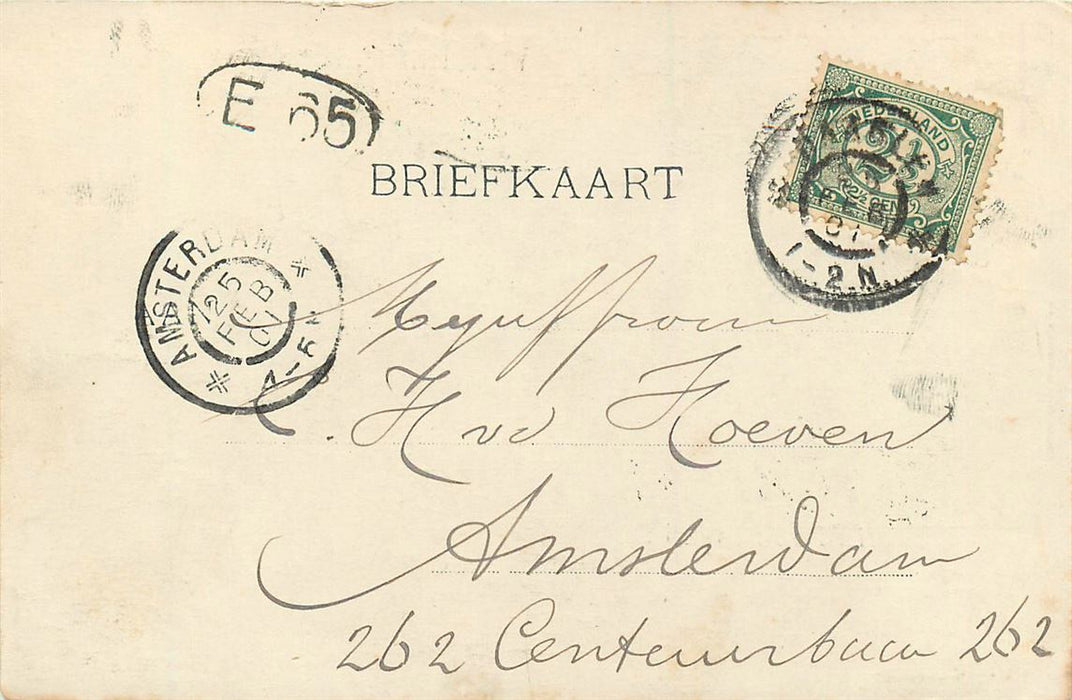 E 65
BRIEFKAART
NEDERLAND
2½
2½ CENT
FEB
01
1-2.N.
AMSTERDAM
25
FEB
01
4-5N
Mejuffrouw
H vd Hoeven
Amsterdam
262 Centuurbaan 262